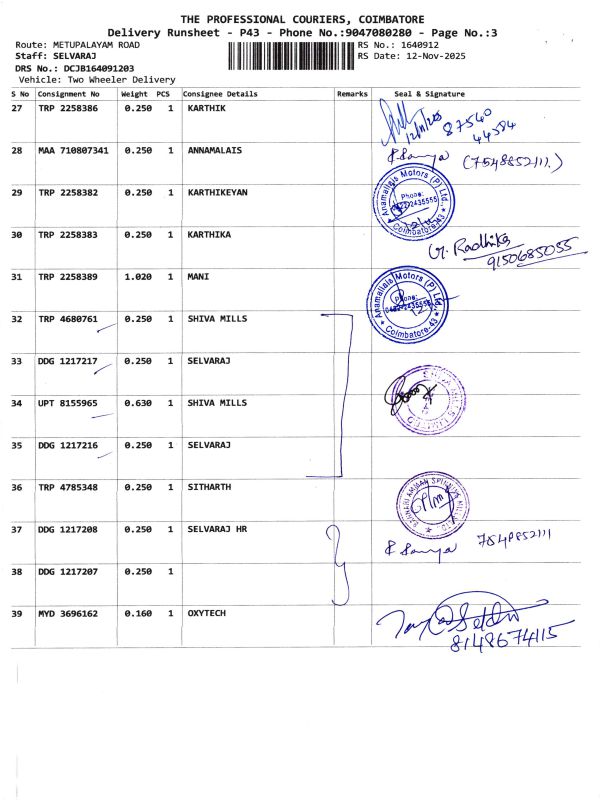 THE PROFESSIONAL COURIERS, COIMBATORE
Delivery Runsheet - P43 - Phone No.:9047080280 - Page No.:3
Route: METUPALAYAM ROAD RS No.: 1640912
Staff: SELVARAJ RS Date: 12-Nov-2025
DRS No.: DCJB164091203
Vehicle: Two Wheeler Delivery
S No Consignment No Weight PCS Consignee Details Remarks Seal & Signature
27 TRP 2258386 0.250 1 KARTHIK
87540
44584
28 MAA 710807341 0.250 1 ANNAMALAIS
(7548852111.)
29 TRP 2258382 0.250 1 KARTHIKEYAN
Anamallais Motors (P) Ltd.,
Phone:
0422-2435555
Coimbatore-43
30 TRP 2258383 0.250 1 KARTHIKA
G. Radhika
9150685055
31 TRP 2258389 1.020 1 MANI
Anamallais Motors (P) Ltd.,
Phone:
0422-2435555
Coimbatore-43
32 TRP 4680761 0.250 1 SHIVA MILLS
33 DDG 1217217 0.250 1 SELVARAJ
34 UPT 8155965 0.630 1 SHIVA MILLS
SHIVA MILLS LIMITED
35 DDG 1217216 0.250 1 SELVARAJ
36 TRP 4785348 0.250 1 SITHARTH
37 DDG 1217208 0.250 1 SELVARAJ HR
7548852111
38 DDG 1217207 0.250 1
39 MYD 3696162 0.160 1 OXYTECH
8148674115